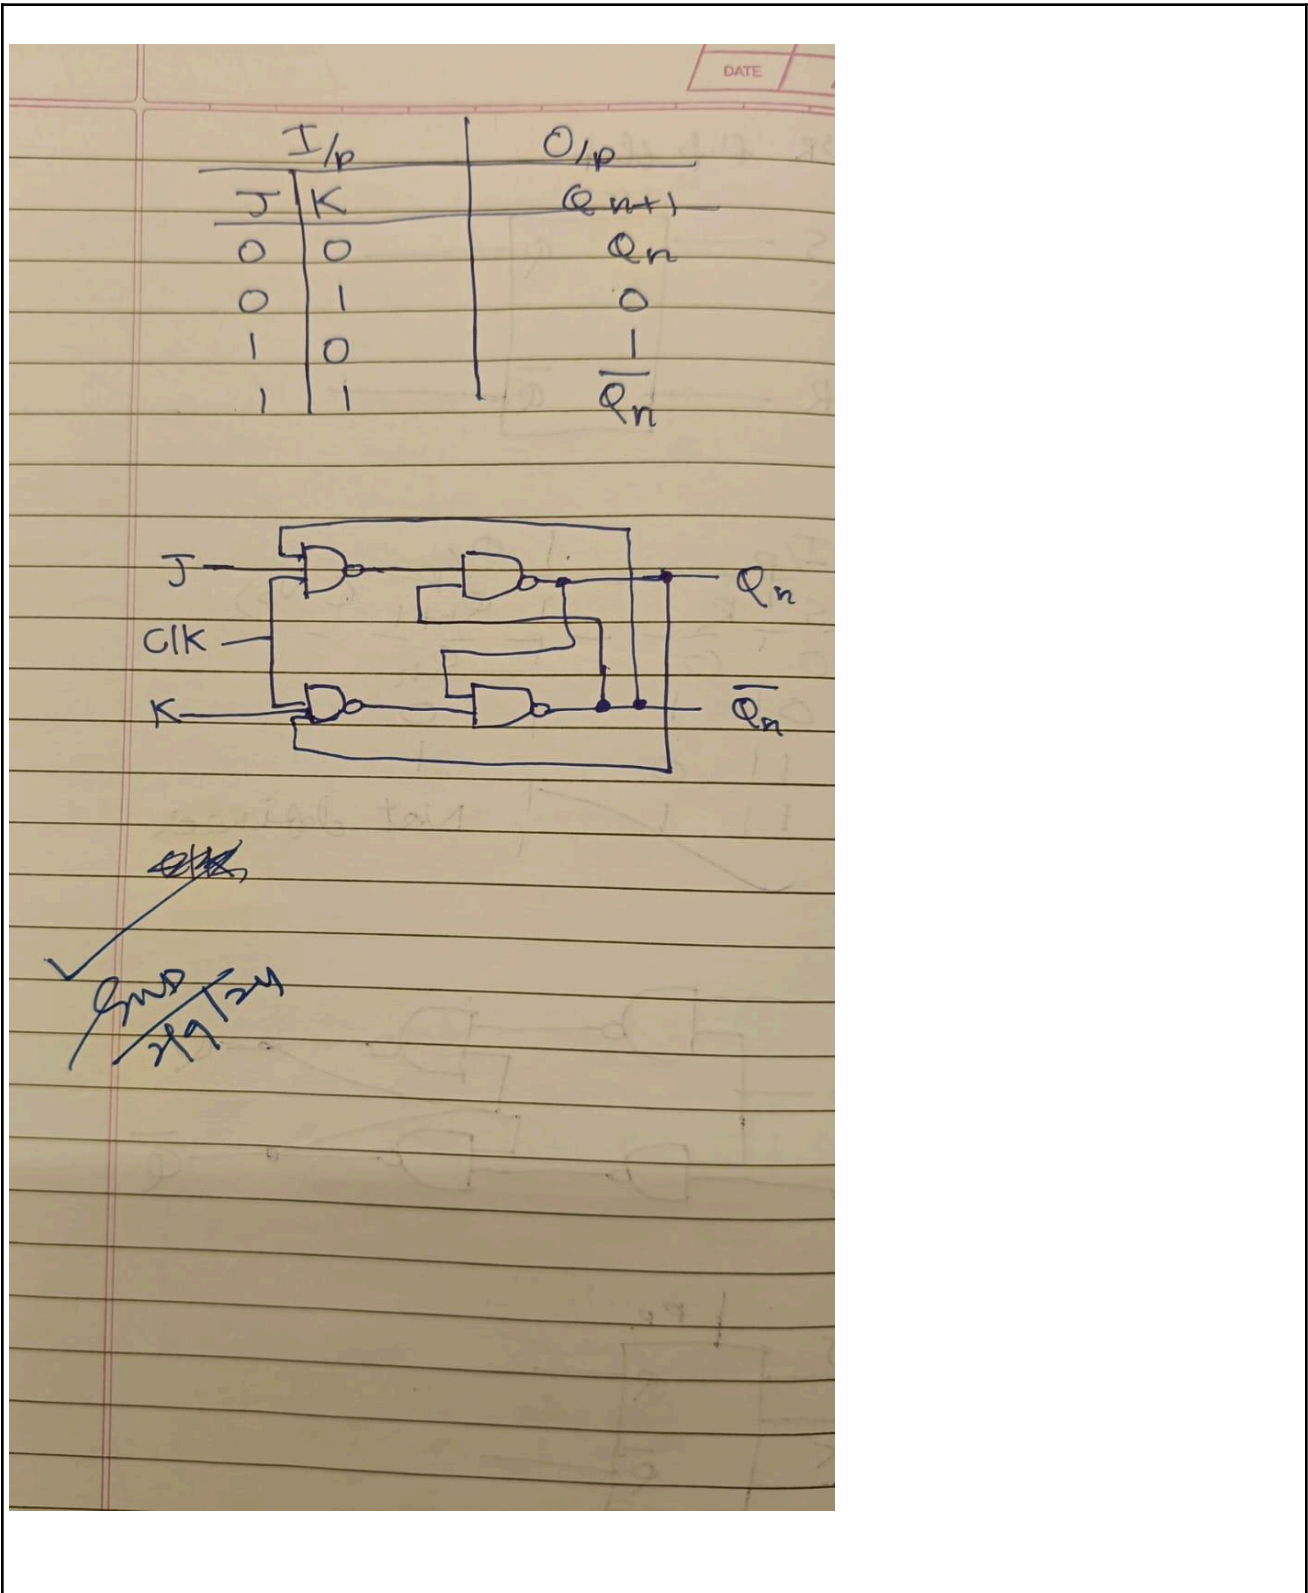 DATE
I/p O/p
J K Qn+1
0 0 Qn
0 1 0
1 0 1
1 1 Q̅n
J Qn
Clk
K Q̅n
2/9/24